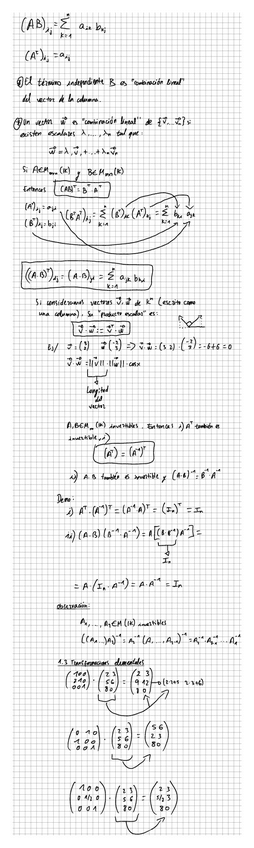 (AB)ij = Σ k=1 n aik bkj
(Aᵗ)ij = aji
El término independiente B es "combinación lineal"
del vector de la columna.
Un vector w⃗ es "combinación lineal" de {v⃗₁...v⃗n} si
existen escalares λ₁...., λn tal que:
w⃗ = λ₁v⃗₁ + ... + λn v⃗n
Si A∈Mmxn(K) y B∈Mnxs(K)
Entonces (AB)ᵀ = Bᵀ·Aᵀ
(Aᵀ)ij = aji
(Bᵀ)ij = bji
(BᵀAᵀ)ij = Σ k=1 n (Bᵀ)ik (Aᵀ)kj = Σ k=1 n bki ajk
((A·B)ᵀ)ij = (A·B)ji = Σ k=1 n ajk bki
Si consideramos vectores v⃗, w⃗ de Kⁿ (escrito como
una columna). Su "producto escalar" es:
v⃗·w⃗ := v⃗ᵗ·w⃗
v⃗ = (3 2) w⃗ = (-2 3) => v⃗·w⃗ = (3 2)·(-2 3) = -6+6 = 0
v⃗·w⃗ = ||v⃗||·||w⃗||·cosα
Longitud
del
vector
A,B∈Mn(K) invertibles. Entonces: i) Aᵀ también es
invertible, y
(Aᵀ)⁻¹ = (A⁻¹)ᵀ
ii) A·B también es invertible y (A·B)⁻¹ = B⁻¹·A⁻¹
Demo:
i) Aᵀ·(A⁻¹)ᵀ = (A⁻¹A)ᵀ = (In)ᵀ = In
ii) (A·B)(B⁻¹·A⁻¹) = A[(B·B⁻¹)A⁻¹] =
In
= A·(In·A⁻¹) = A·A⁻¹ = In
Observación:
A₁,...,As∈M(K) invertibles
1.3 Transformaciones elementales
(1 0 0
2 1 0
0 0 1) · (2 3
5 6
8 0) = (2 3
9 12
8 0) → (2·2+5 2·3+6)
(0 1 0
1 0 0
0 0 1) · (2 3
5 6
8 0) = (5 6
2 3
8 0)
(1 0 0
0 1/2 0
0 0 1) · (2 3
5 6
8 0) = (2 3
5/2 3
8 0)